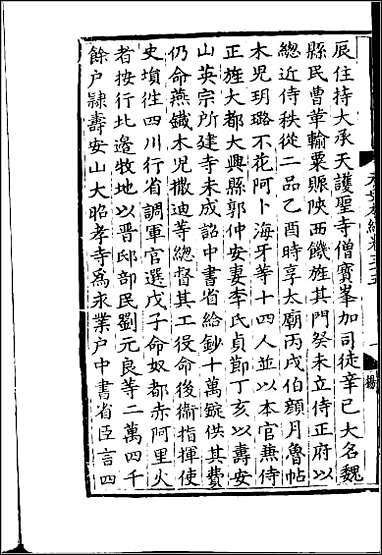 辰住持大承天護聖寺僧寶峯加司徒辛巳大名魏
縣民曹革輸粟賑陜西饑旌其門癸未立侍正府以
總近侍秩從二品乙酉時享太廟丙戌伯顏月魯帖
木兒玥璐不花阿卜海牙等十四人並以本官兼侍
正旌大都大興縣郭仲安妻李氏貞節丁亥以壽安
山英宗所建寺未成詔中書省給鈔十萬錠供其費
仍命燕鐵木兒撒迪等總督其工役命後衛指揮使
史塤徃四川行省調軍官選戊子命奴都赤阿里火
者按行北邊牧地以晋邸部民劉元良等二萬四千
餘户隷壽安山大昭孝寺爲永業户中書省臣言四